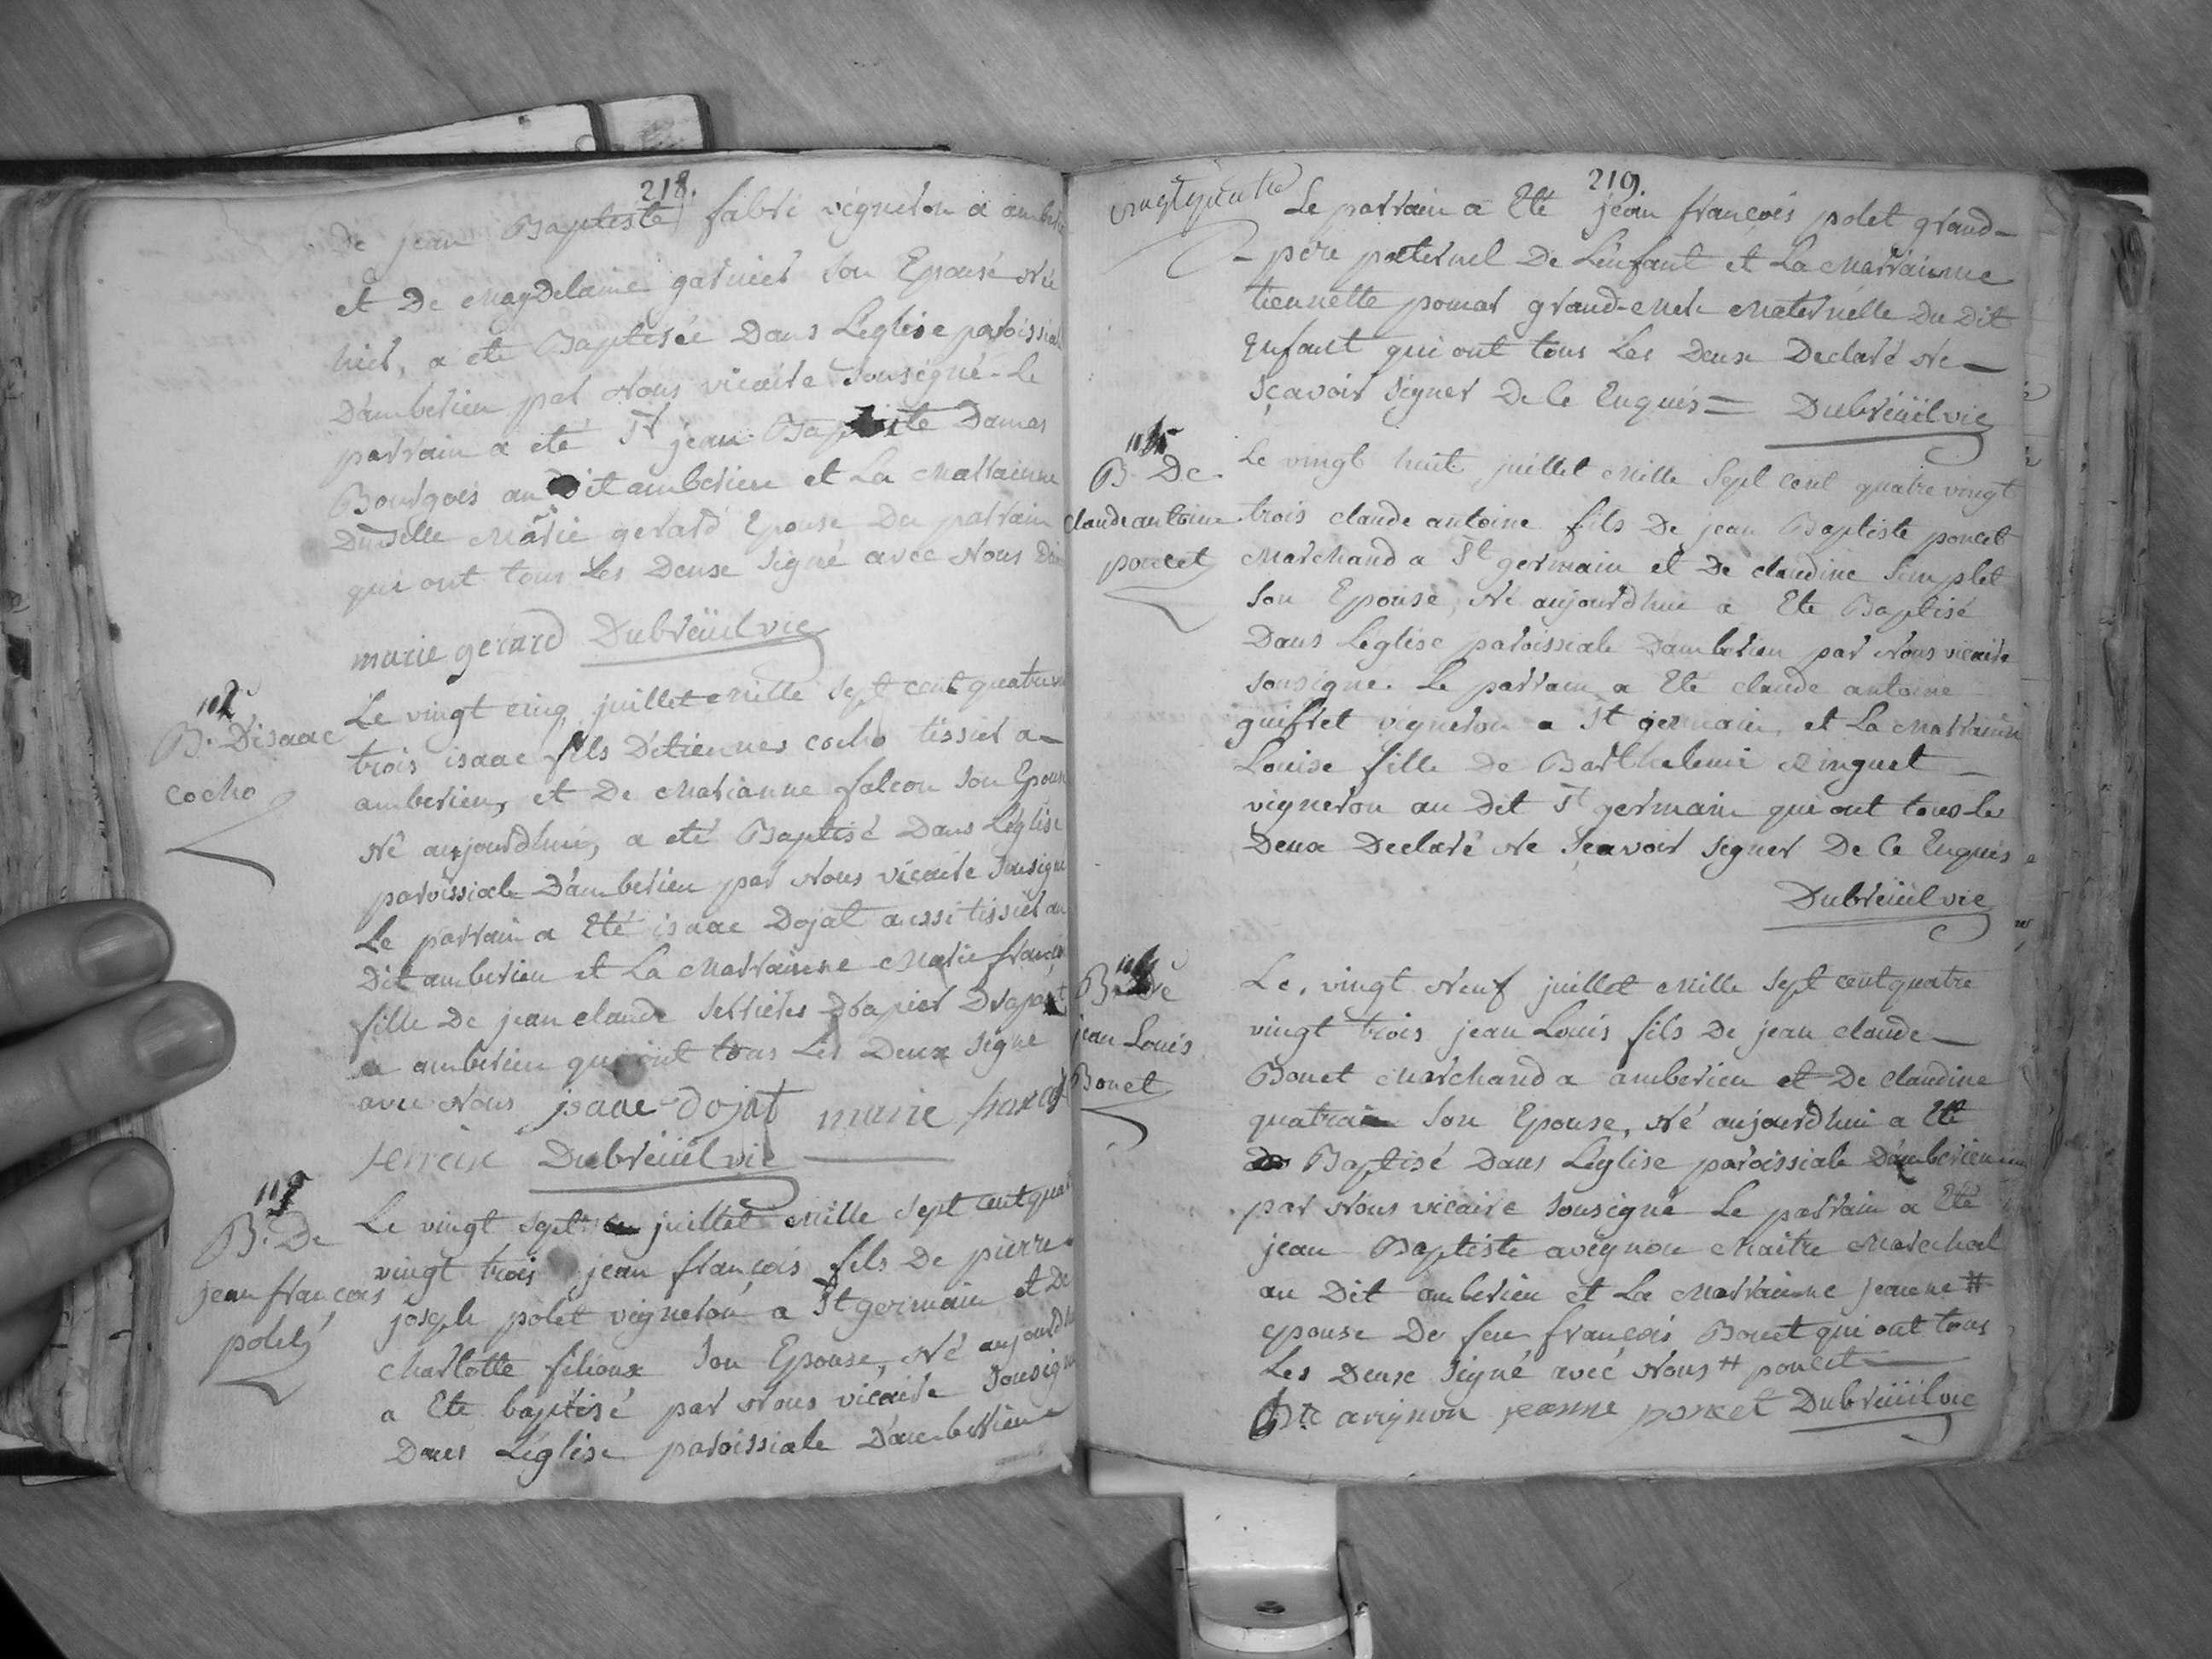 218.
De jean Baptiste fabri vigneron a
et De Magdelaine garnier son Epouse Née
hier, a eté Baptisée Dans Leglise
D'amberieu par Nous vicaire sousigné. Le
parrain a eté Sr jean Baptiste Damas
Bourgois au Dit amberieu et La Marrainne
Marie gerard Epouse Du parrain
qui ont tous Les Deux Signé avec Nous
marie gerard Dubreüil vic
B. D'isaac
cocho
Le vingt cinq juillet Mille sept cent
trois isaac fils D'etiennes cocho tissier a
amberieu, et De Marianne falcon son Epouse
Né aujourdhui, a eté Baptisé Dans Léglise
paroissiale D'amberieu par Nous vicaire
Le parrain a Eté isaac Dojat aussi tissier au
Dit amberieu et La Marrainne Marie
fille De jean claude
a amberieu qui ont tous Les Deux signé
avec Nous isaac Dojat marie
Dubreüil vic
B. De
jean françois
polet
Le vingt sept juillet Mille sept cent
vingt trois jean françois fils De pierre
joseph polet vigneron a St germain et De
Charlotte filioux son Epouse, Né
a Eté baptisé par Nous vicaire
Dans Leglise paroissiale D'amberieu
219.
vingt quatre
Le parrain a Eté jean françois polet grand
pere paternel De Lenfant et La Marrainne
tiennette pomar grand-Mere Maternelle Du Dit
Enfant qui ont tous Les Deux Declaré Ne
sçavoir signer De Ce Enquis = Dubreüil vic
B. De
claude antoine
poncet
Le vingt huit juillet Mille Sept cent quatre vingt
trois claude antoine fils De jean Baptiste poncet
Marchand a St germain et De claudine
son Epouse, Né aujourdhui a Eté Baptisé
Dans Léglise paroissiale D'amberieu par Nous vicaire
sousigné. Le parrain a Eté claude antoine
guiffret vigneron a St germain, et La Marrainne
Louise fille De Barthelemi
vigneron au Dit St germain qui ont tous Les
Deux Declaré Ne sçavoir signer De Ce Enquis
Dubreüil vic
jean Louis
Bonet
Le, vingt Neuf juillet Mille sept cent quatre
vingt trois jean Louis fils De jean claude
Bonet Marchand a amberieu et De claudine
son Epouse, Né aujourdhui a Eté
Baptisé Dans Léglise paroissiale D'amberieu
par Nous vicaire sousigné Le parrain a Eté
jean Baptiste avignon Maitre Marechal
au Dit amberieu et La Marrainne jeanne #
epouse De feu françois Bonet qui ont tous
Les Deux signé avec Nous # poncet
Bte avignon jeanne poncet Dubreüil vic